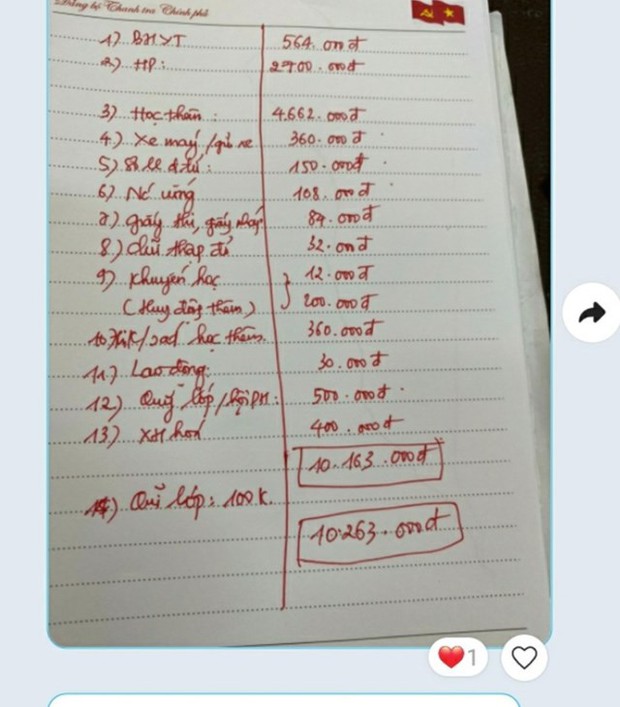 Đảng bộ Thanh tra Chính phủ
1) BHYT 564.000đ
2) HP: 2700.000đ
3) Học thêm: 4.662.000đ
4) Xe máy/gửi xe 360.000đ
5) Sổ LL đ tử: 150.000đ
6) Nc uống 108.000đ
7) giấy thi, giấy nháp 84.000đ
8) chữ thập đỏ 32.000đ
9) Khuyến học 12.000đ
(Huy động thêm) 200.000đ
10) học thêm. 360.000đ
11) Lao động: 30.000đ
12) Quỹ lớp/hội PH: 500.000đ
13) XH hoá 400.000đ
10.163.000đ
14) Quĩ lớp: 100K.
10.263.000đ
1